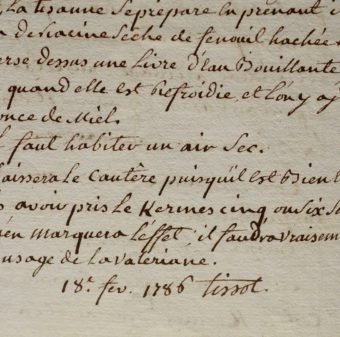 La tisanne se prépare en prenant
de Racine Sèche de fenouil hachée
erse dessus une Livre d'Eau Bouillante
quand elle est Refroidie, et l'on y aj
once de Miel.
faut habiter un air Sec.
laissera le Cautère puisqu'il est Bien
avoir pris le Kermes cinq ou six
en marquera l'effet, il faudra vraisem
usage de la valeriane.
18e. fev. 1786 Tissot.